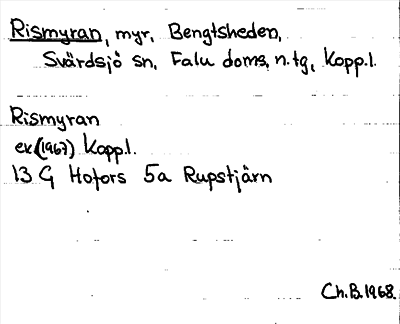 Rismyran, myr, Bengtsheden,
Svärdsjö sn, Falu doms. n. tg, Kopp.l.
Rismyran
ek (1967) Kopp.l.
13 G Hofors 5a Rupstjärn
Ch.B. 1968.